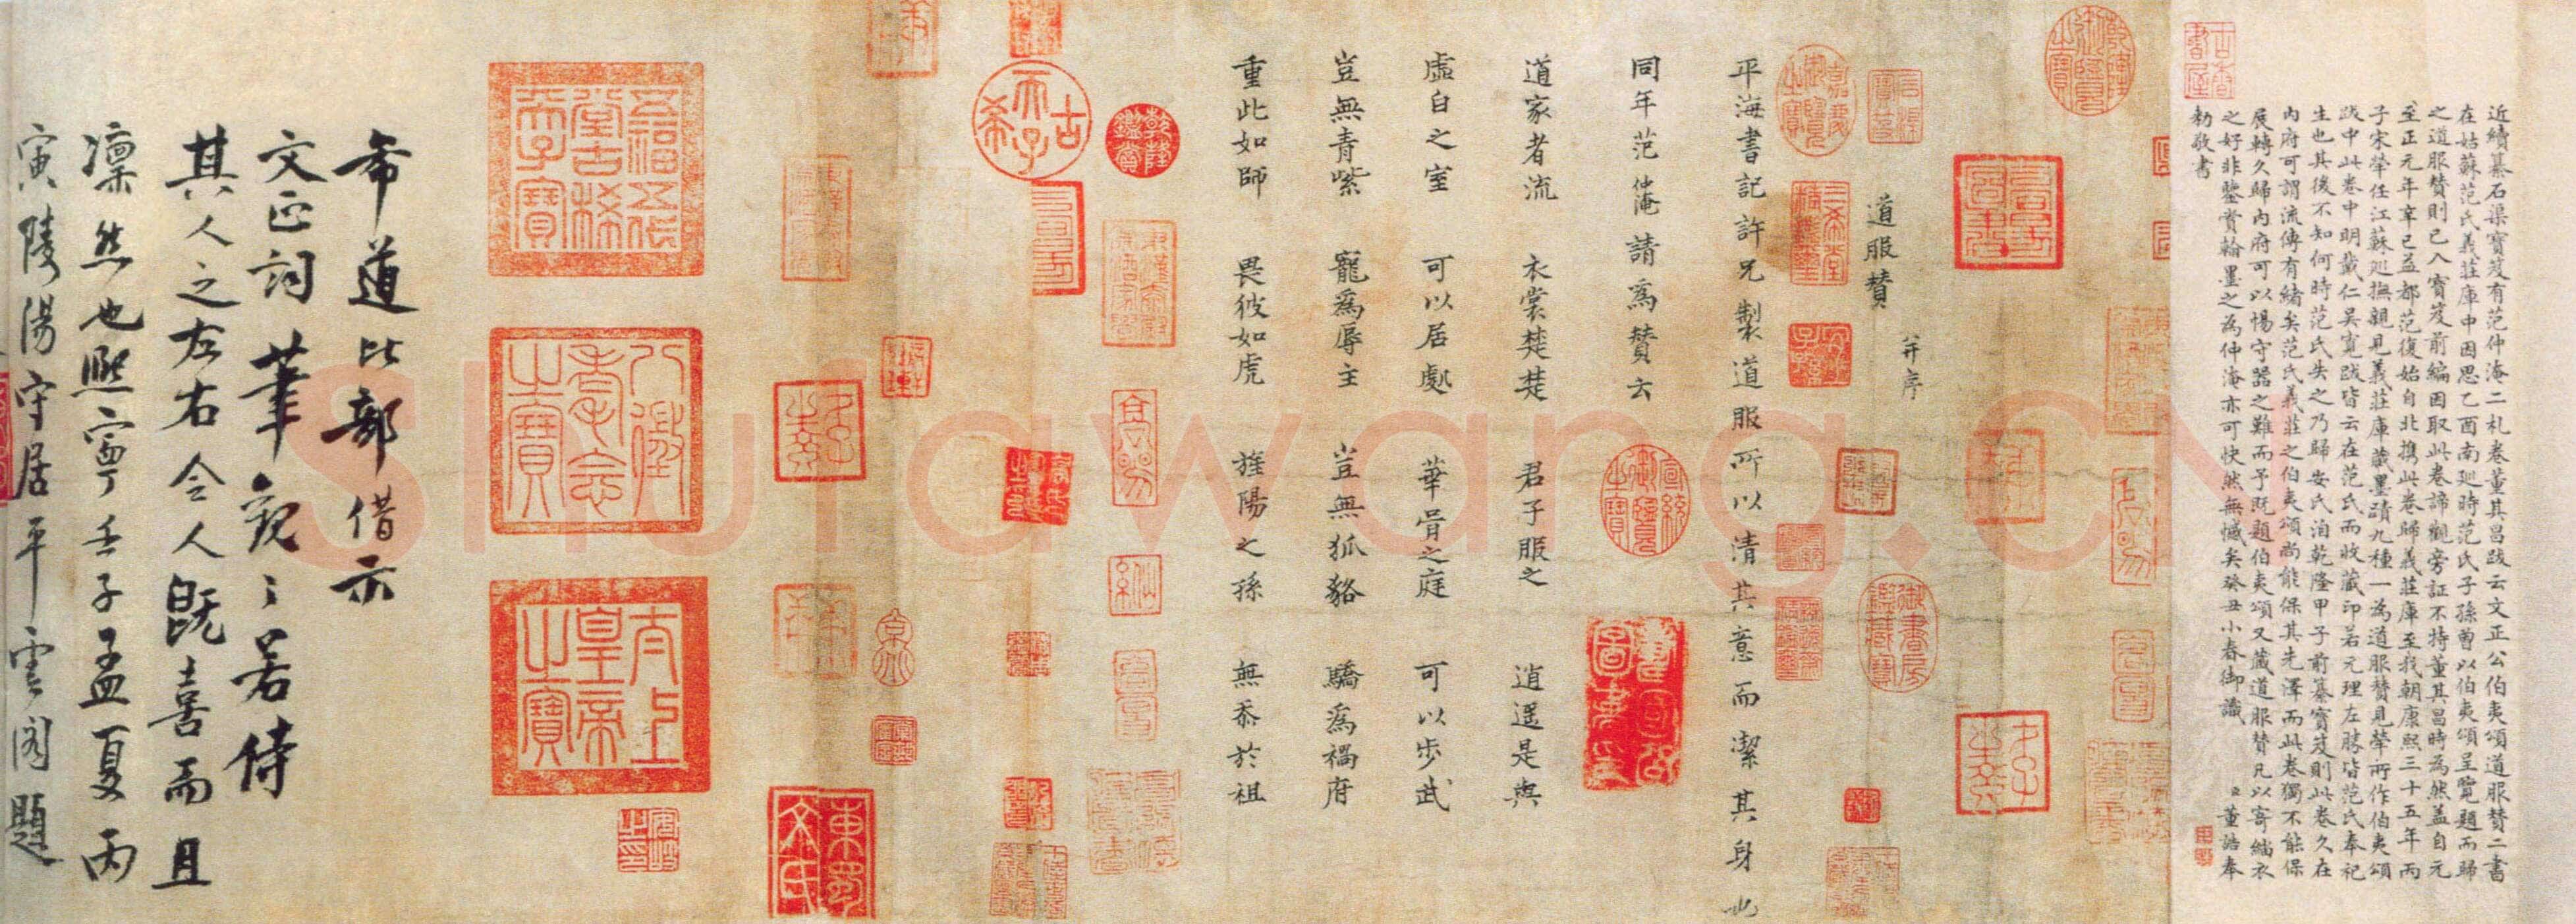 近續纂石渠寶笈有范仲淹二札卷董其昌跋云文正公伯夷頌道服賛二書
在姑蘇范氏義莊庫中因思乙酉南廵時范氏子孫曾以伯夷頌呈覽題而歸
之道服賛則已入寶笈前編因取此卷諦觀旁証不特董其昌時為然蓋自元
至正元年辛已益都范復始自北携此卷歸義莊庫至我朝康熙三十五年丙
子宋犖任江蘇廵撫親見義莊庫藏墨蹟九種一為道服賛見犖所作伯夷頌
跋中此卷中明戴仁吴寛跋皆云在范氏而收藏印若元理左勝皆范氏奉祀
生也其後不知何時范氏失之乃歸安氏洎乾隆甲子前纂寶笈則此卷久在
内府可謂流傳有緒矣范氏義莊之伯夷頌尚能保其先澤而此卷獨不能保
展轉久歸内府可以惕守器之難而予既題伯夷頌又藏道服賛凡以寄緇衣
之好非鑒賞翰墨之為仲淹亦可快然無憾矣癸丑小春御識 臣董誥奉
勅敬書
道服賛 并序
平海書記許兄製道服所以清其意而潔其身也
同年范仲淹請為賛云
道家者流 衣裳楚楚 君子服之 逍遥是與
虛白之室 可以居處 華胥之庭 可以步武
豈無青紫 寵為辱主 豈無狐貉 驕為禍府
重此如師 畏彼如虎 旌陽之孫 無忝於祖
古希天子
乾隆鑑賞
五福五代堂古稀天子寶
八徵耄念之寶
太上皇帝之寶
希道比部借示
文正詞筆觀之若侍
其人之左右令人既喜而且
凜然也熙寧壬子孟夏丙
寅陵陽守居平雲閣題
Shufawang.CN